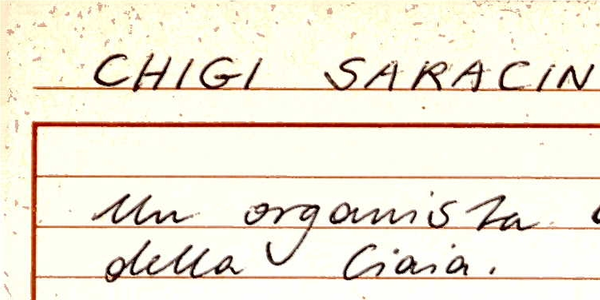 CHIGI SARACIN
Un organista
della Ciaia.